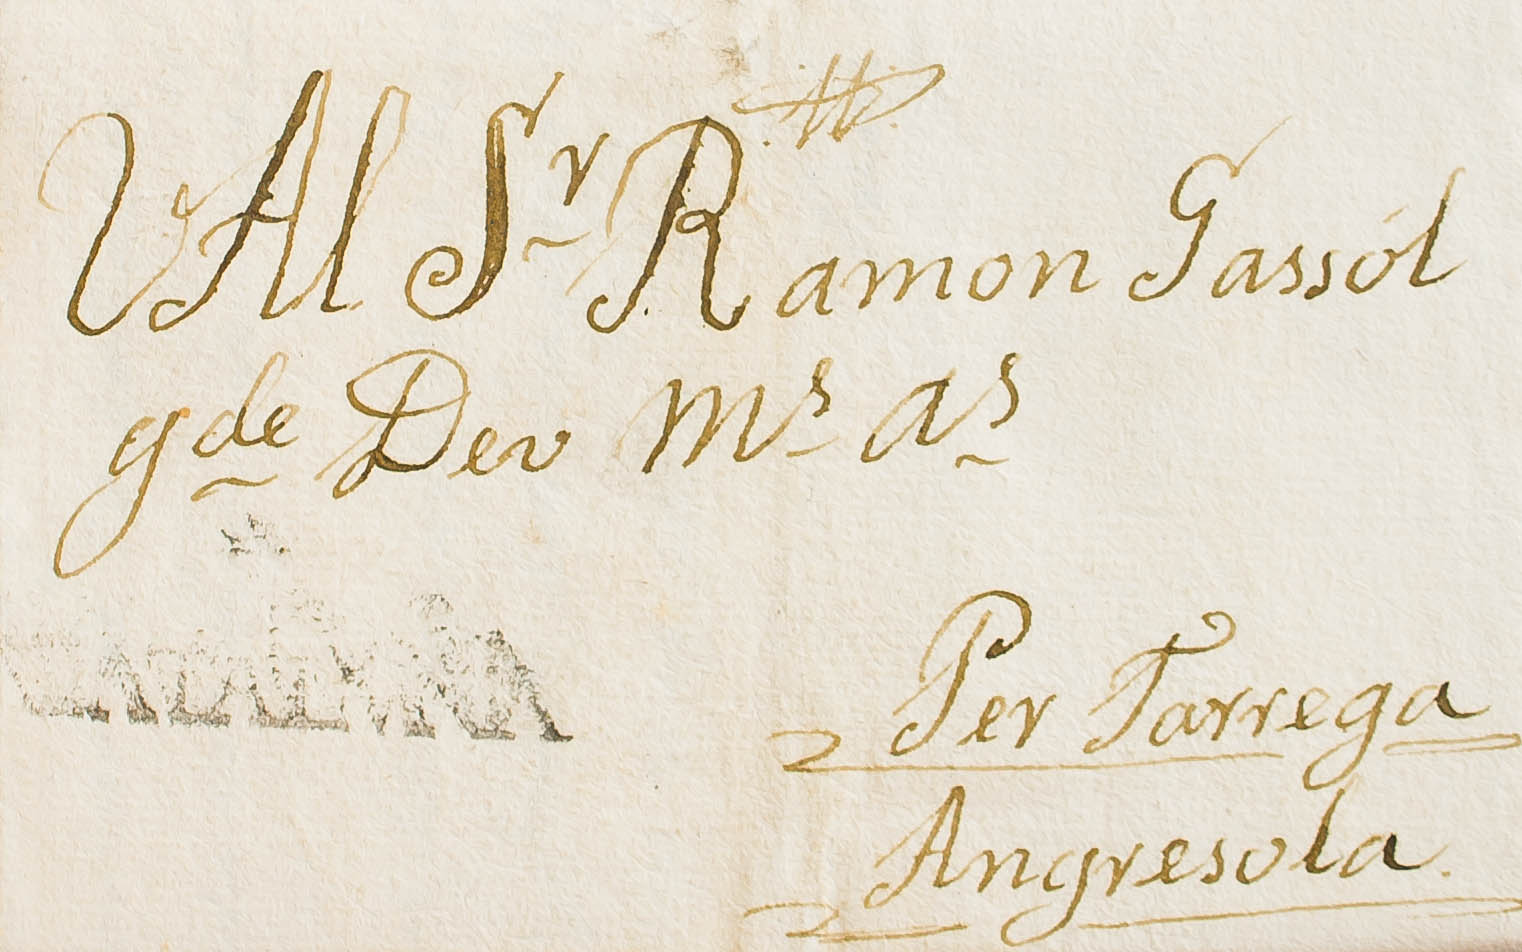 Al Sr Ramon Gassól
gde Dev ms as
CATALUÑA
Per Tarrega
Angresola.